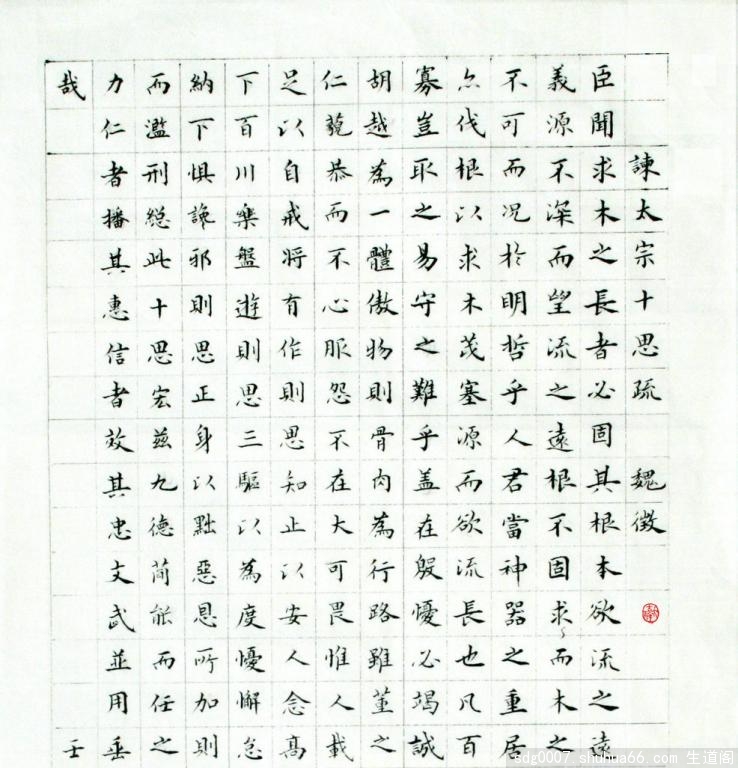 諫太宗十思疏 魏徵
臣聞求木之長者必固其根本欲流之遠
義源不深而望流之遠根不固求而木之
不可而况於明哲乎人君當神器之重居
亦伐根以求木茂塞源而欲流長也凡百
寡豈取之易守之難乎盖在殷憂必竭誠
胡越為一體傲物則骨肉為行路雖董之
仁藐恭而不心服怨不在大可畏惟人載
足以自戒將有作則思知止以安人念高
下百川樂盤遊則思三驅以為度憂懈怠
納下惧讒邪則思正身以黜惡恩所加則
而濫刑緫此十思宏茲九德蕑能而任之
力仁者播其惠信者效其忠文武並用垂
哉 壬
sdg0007.shuhua66.com 生道阁